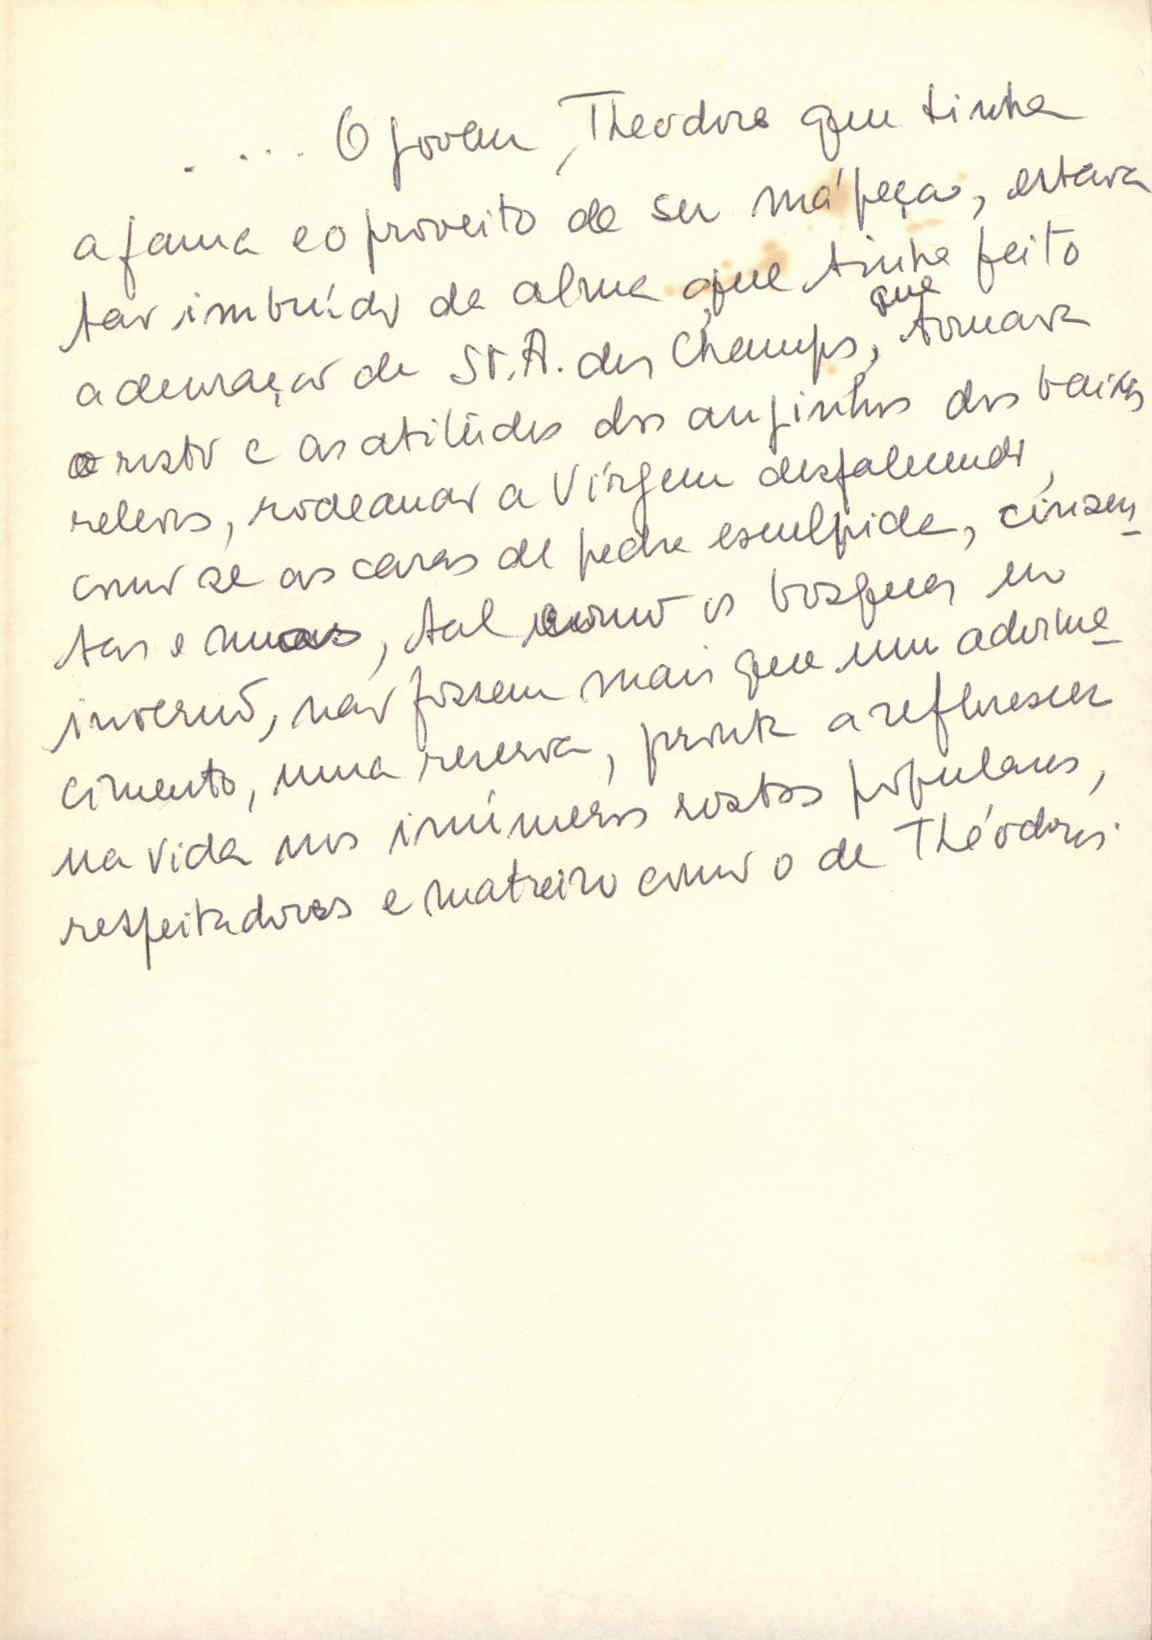 . ... O jovem, Theodore que tinha
a fama e o proveito de ser má peça, estava
tão imbuído da alma que tinha feito
a decoração de St. A. des Champs, que tomava
o rosto e as atitudes dos anjinhos dos baixos
relevos, rodeando a Virgem desfalecendo,
como se as caras de pedra esculpida, cinzen-
tas e nuas, tal como os bosques no
inverno, não fossem mais que um adorme-
cimento, uma reserva, pronta a reflorescer
na vida nos inúmeros rostos populares,
respeitadores e matreiro como o de Théodore